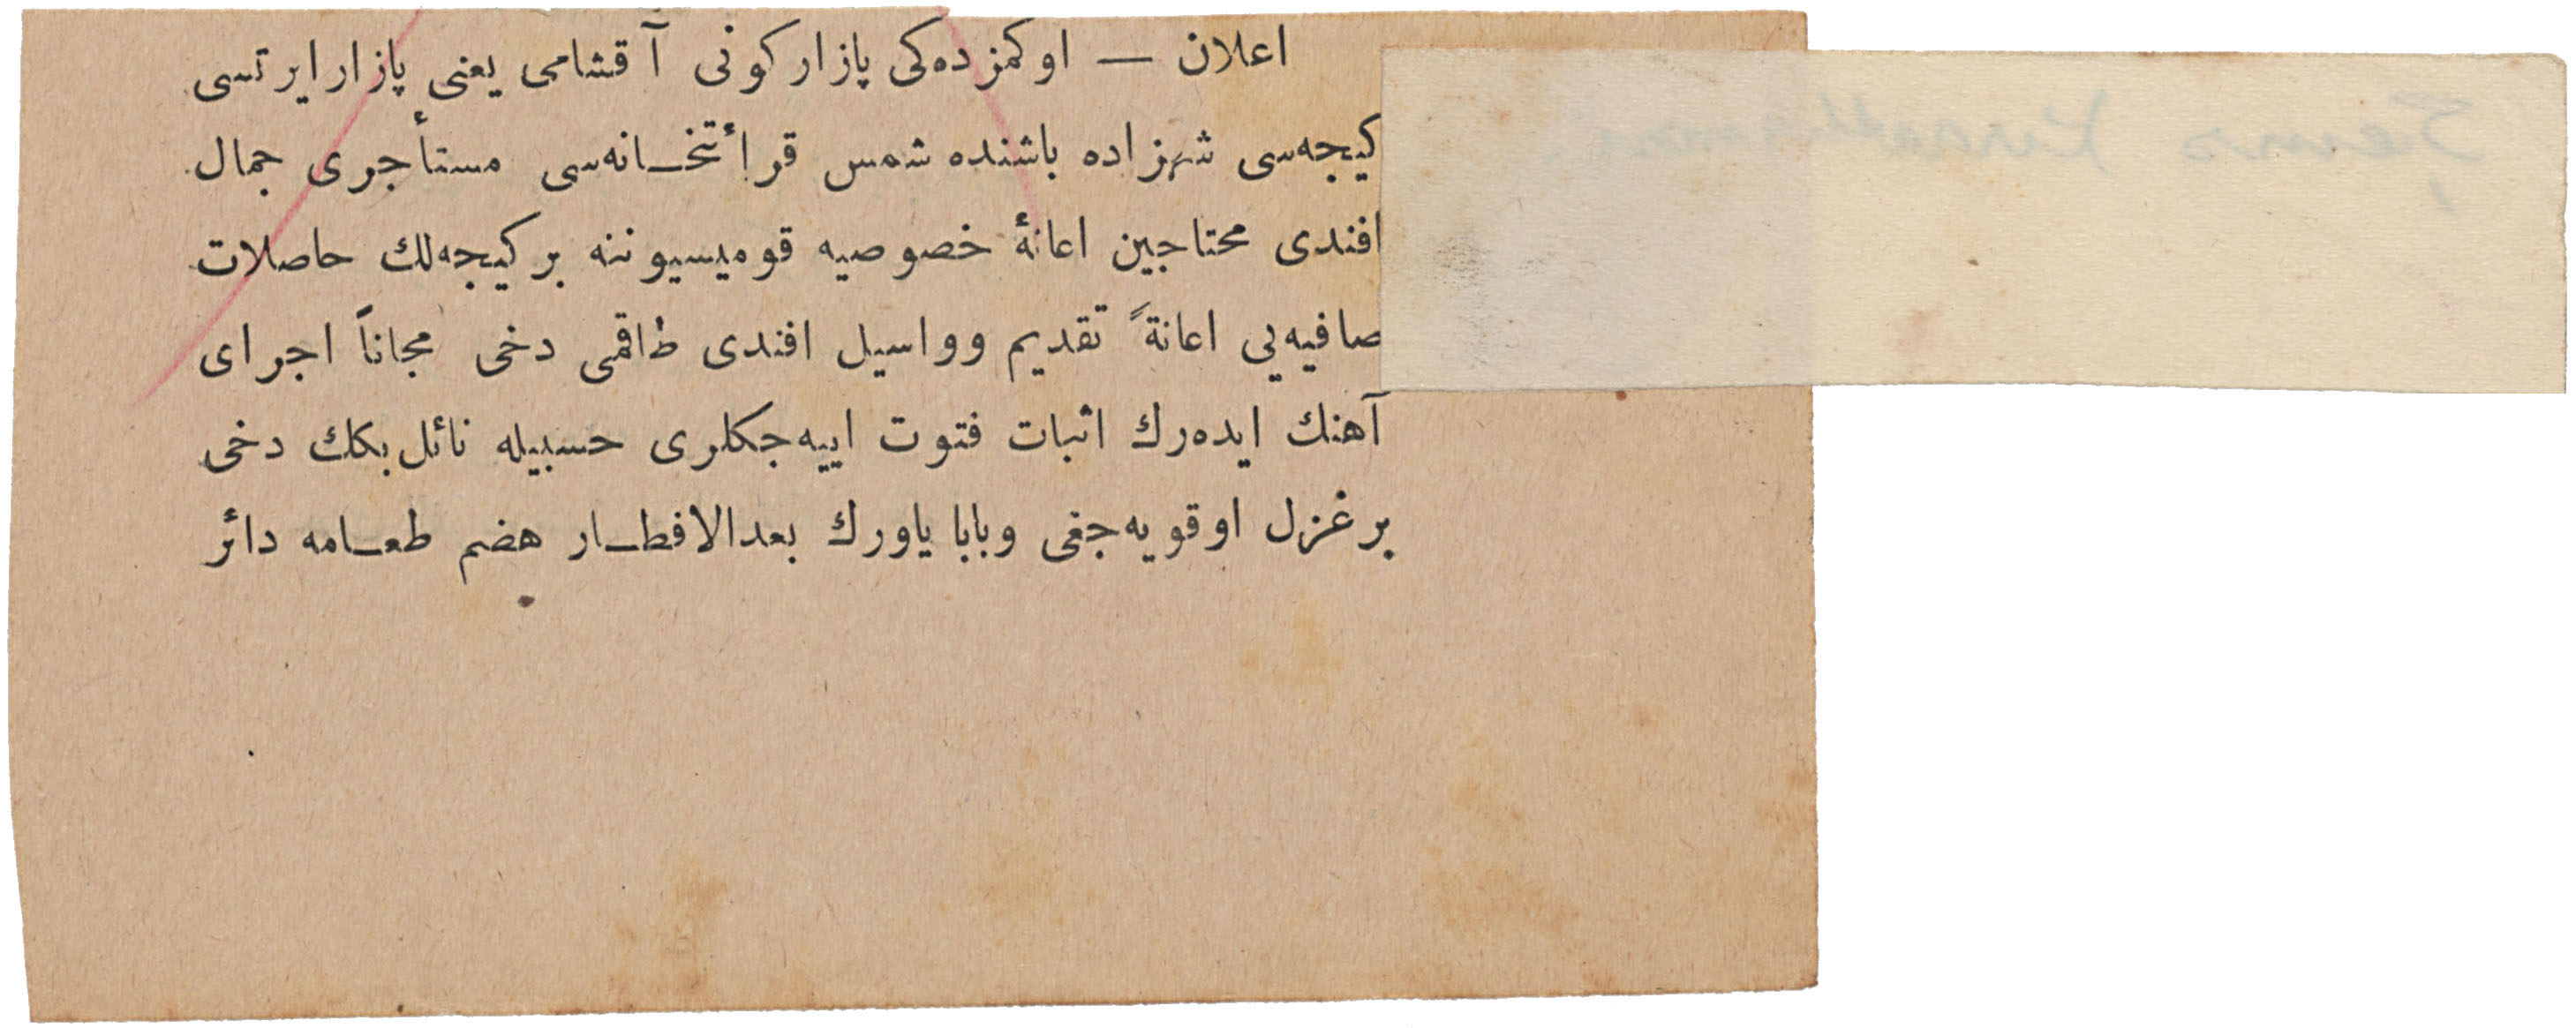 اعلان — اوكمزده‌كی پازار كونی آقشامی یعنی پازار ایرتسی
كیجه‌سی شهزاده باشنده شمس قرأتخانه‌سی مستأجری جمال
افندی محتاجین اعانهٔ خصوصیه قومیسیوننه بر كیجه‌لك حاصلات
صافیه‌یی اعانةً تقدیم وواسیل افندی طاقمی دخی مجاناً اجرای
آهنك ایده‌رك اثبات فتوت اییه‌جكلری حسبیله نائل بكك دخی
بر غزل اوقویه‌جغی وبابا یاورك بعدالافطار هضم طعامه دائر
Şems Kıraathanesi